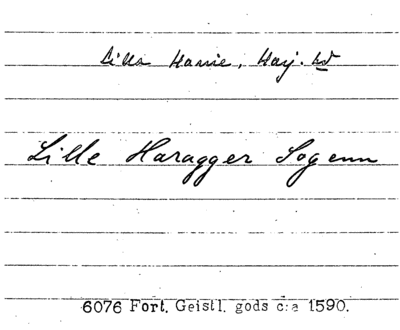 Lilla Harrie, Harj. hd
Lille Haragger Sogenn
6076 Fort. Geistl. gods c:a 1590.